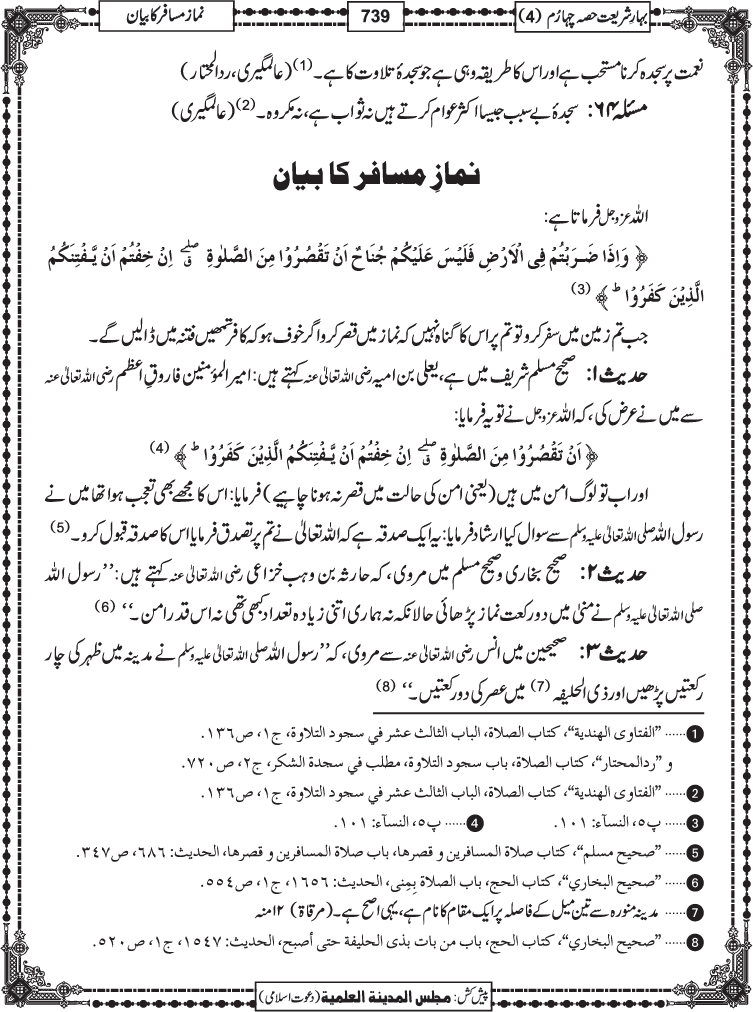 بہارِ شریعت حصہ چہارم (4)
739
نمازِ مسافر کا بیان
نعمت پر سجدہ کرنا مستحب ہے اور اس کا طریقہ وہی ہے جو سجدۂ تلاوت کا ہے۔(1) (عالمگیری، ردالمحتار)
مسئلہ ۶۴: سجدۂ بے سبب جیسا اکثر عوام کرتے ہیں نہ ثواب ہے، نہ مکروہ۔(2) (عالمگیری)
نمازِ مسافر کا بیان
اللہ عزوجل فرماتا ہے:
﴿ وَاِذَا ضَرَبْتُمْ فِی الْاَرْضِ فَلَیْسَ عَلَیْكُمْ جُنَاحٌ اَنْ تَقْصُرُوْا مِنَ الصَّلٰوةِ ۖۗ اِنْ خِفْتُمْ اَنْ یَّفْتِنَكُمُ
الَّذِیْنَ كَفَرُوْا ؕ﴾ (3)
جب تم زمین میں سفر کرو تو تم پر اس کا گناہ نہیں کہ نماز میں قصر کرو اگر خوف ہو کہ کافر تمھیں فتنہ میں ڈالیں گے۔
حدیث ۱: صحیح مسلم شریف میں ہے، یعلی بن امیہ رضی اللہ تعالیٰ عنہ کہتے ہیں: امیر المؤمنین فاروقِ اعظم رضی اللہ تعالیٰ عنہ
سے میں نے عرض کی، کہ اللہ عزوجل نے تو یہ فرمایا:
﴿ اَنْ تَقْصُرُوْا مِنَ الصَّلٰوةِ ۖۗ اِنْ خِفْتُمْ اَنْ یَّفْتِنَكُمُ الَّذِیْنَ كَفَرُوْا ؕ﴾ (4)
اور اب تو لوگ امن میں ہیں (یعنی امن کی حالت میں قصر نہ ہونا چاہیے) فرمایا: اس کا مجھے بھی تعجب ہوا تھا میں نے
رسول اللہ صلی اللہ تعالیٰ علیہ وسلم سے سوال کیا ارشاد فرمایا: یہ ایک صدقہ ہے کہ اللہ تعالیٰ نے تم پر تصدق فرمایا اس کا صدقہ قبول کرو۔(5)
حدیث ۲: صحیح بخاری و صحیح مسلم میں مروی، کہ حارثہ بن وہب خزاعی رضی اللہ تعالیٰ عنہ کہتے ہیں: ’’رسول اللہ
صلی اللہ تعالیٰ علیہ وسلم نے منیٰ میں دو رکعت نماز پڑھائی حالانکہ نہ ہماری اتنی زیادہ تعداد کبھی تھی نہ اس قدر امن۔‘‘ (6)
حدیث ۳: صحیحین میں انس رضی اللہ تعالیٰ عنہ سے مروی، کہ ’’رسول اللہ صلی اللہ تعالیٰ علیہ وسلم نے مدینہ میں ظہر کی چار
رکعتیں پڑھیں اور ذی الحلیفہ (7) میں عصر کی دو رکعتیں۔‘‘ (8)
1...... "الفتاوى الهندية"، كتاب الصلاة، الباب الثالث عشر في سجود التلاوة، ج١، ص١٣٦.
و "ردالمحتار"، كتاب الصلاة، باب سجود التلاوة، مطلب في سجدة الشكر، ج٢، ص٧٢٠.
2...... "الفتاوى الهندية"، كتاب الصلاة، الباب الثالث عشر في سجود التلاوة، ج١، ص١٣٦.
3...... پ٥، النسآء: ١٠١. 4...... پ٥، النسآء: ١٠١.
5...... "صحيح مسلم"، كتاب صلاة المسافرين و قصرها، باب صلاة المسافرين و قصرها، الحديث: ٦٨٦، ص٣٤٧.
6...... "صحيح البخاري"، كتاب الحج، باب الصلاة بِمِنى، الحديث: ١٦٥٦، ج١، ص٥٥٤.
7...... مدینہ منورہ سے تین میل کے فاصلہ پر ایک مقام کا نام ہے، یہی اصح ہے۔ (مرقاۃ) ۱۲منہ
8...... "صحيح البخاري"، كتاب الحج، باب من بات بذى الحليفة حتى أصبح، الحديث: ١٥٤٧، ج١، ص٥٢٠.
پیش کش: مجلس المدينة العلمية (دعوتِ اسلامی)